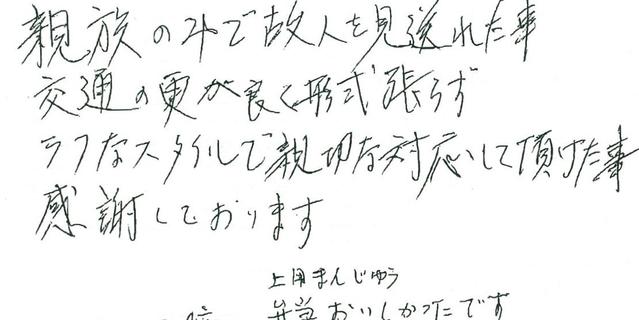 親族のみで故人を見送れた事
交通の更が良く形式張らず
ラフなスタイルで親切な対応して頂けた事
感謝しております
上用まんじゅう
弁当おいしかったです